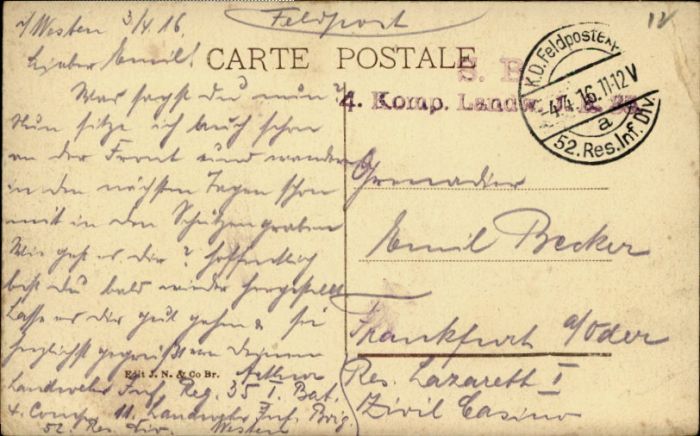 i/Westen 3/4. 16.
Feldpost
IV
Lieber Emil!
CARTE POSTALE
Was sagst du nun?
Nun sitze ich auch schon
an der Front und wandere
in den nächsten Tagen schon
mit in den Schützengraben
Wie geht es dir? hoffentlich
bist du bald wieder hergestellt
Lasse es dir gut gehen & sei
herzlichst gegrüßt von Deinem
Edit J. N. & Co Br.
Landwehr Inf. Reg. 35 I. Bat.
4. Comp. 11. Landwehr Inf. Brig
52. Res. Div. Westen
S. B.
4. Komp. Landw. I. R. 35
K.D. Feldpostexp.
4.4.16. 11-12V
a
52. Res. Inf. Div.
Grenadier
Emil Becker
Frankfurt a/Oder
Res. Lazarett I
Zivil Casino